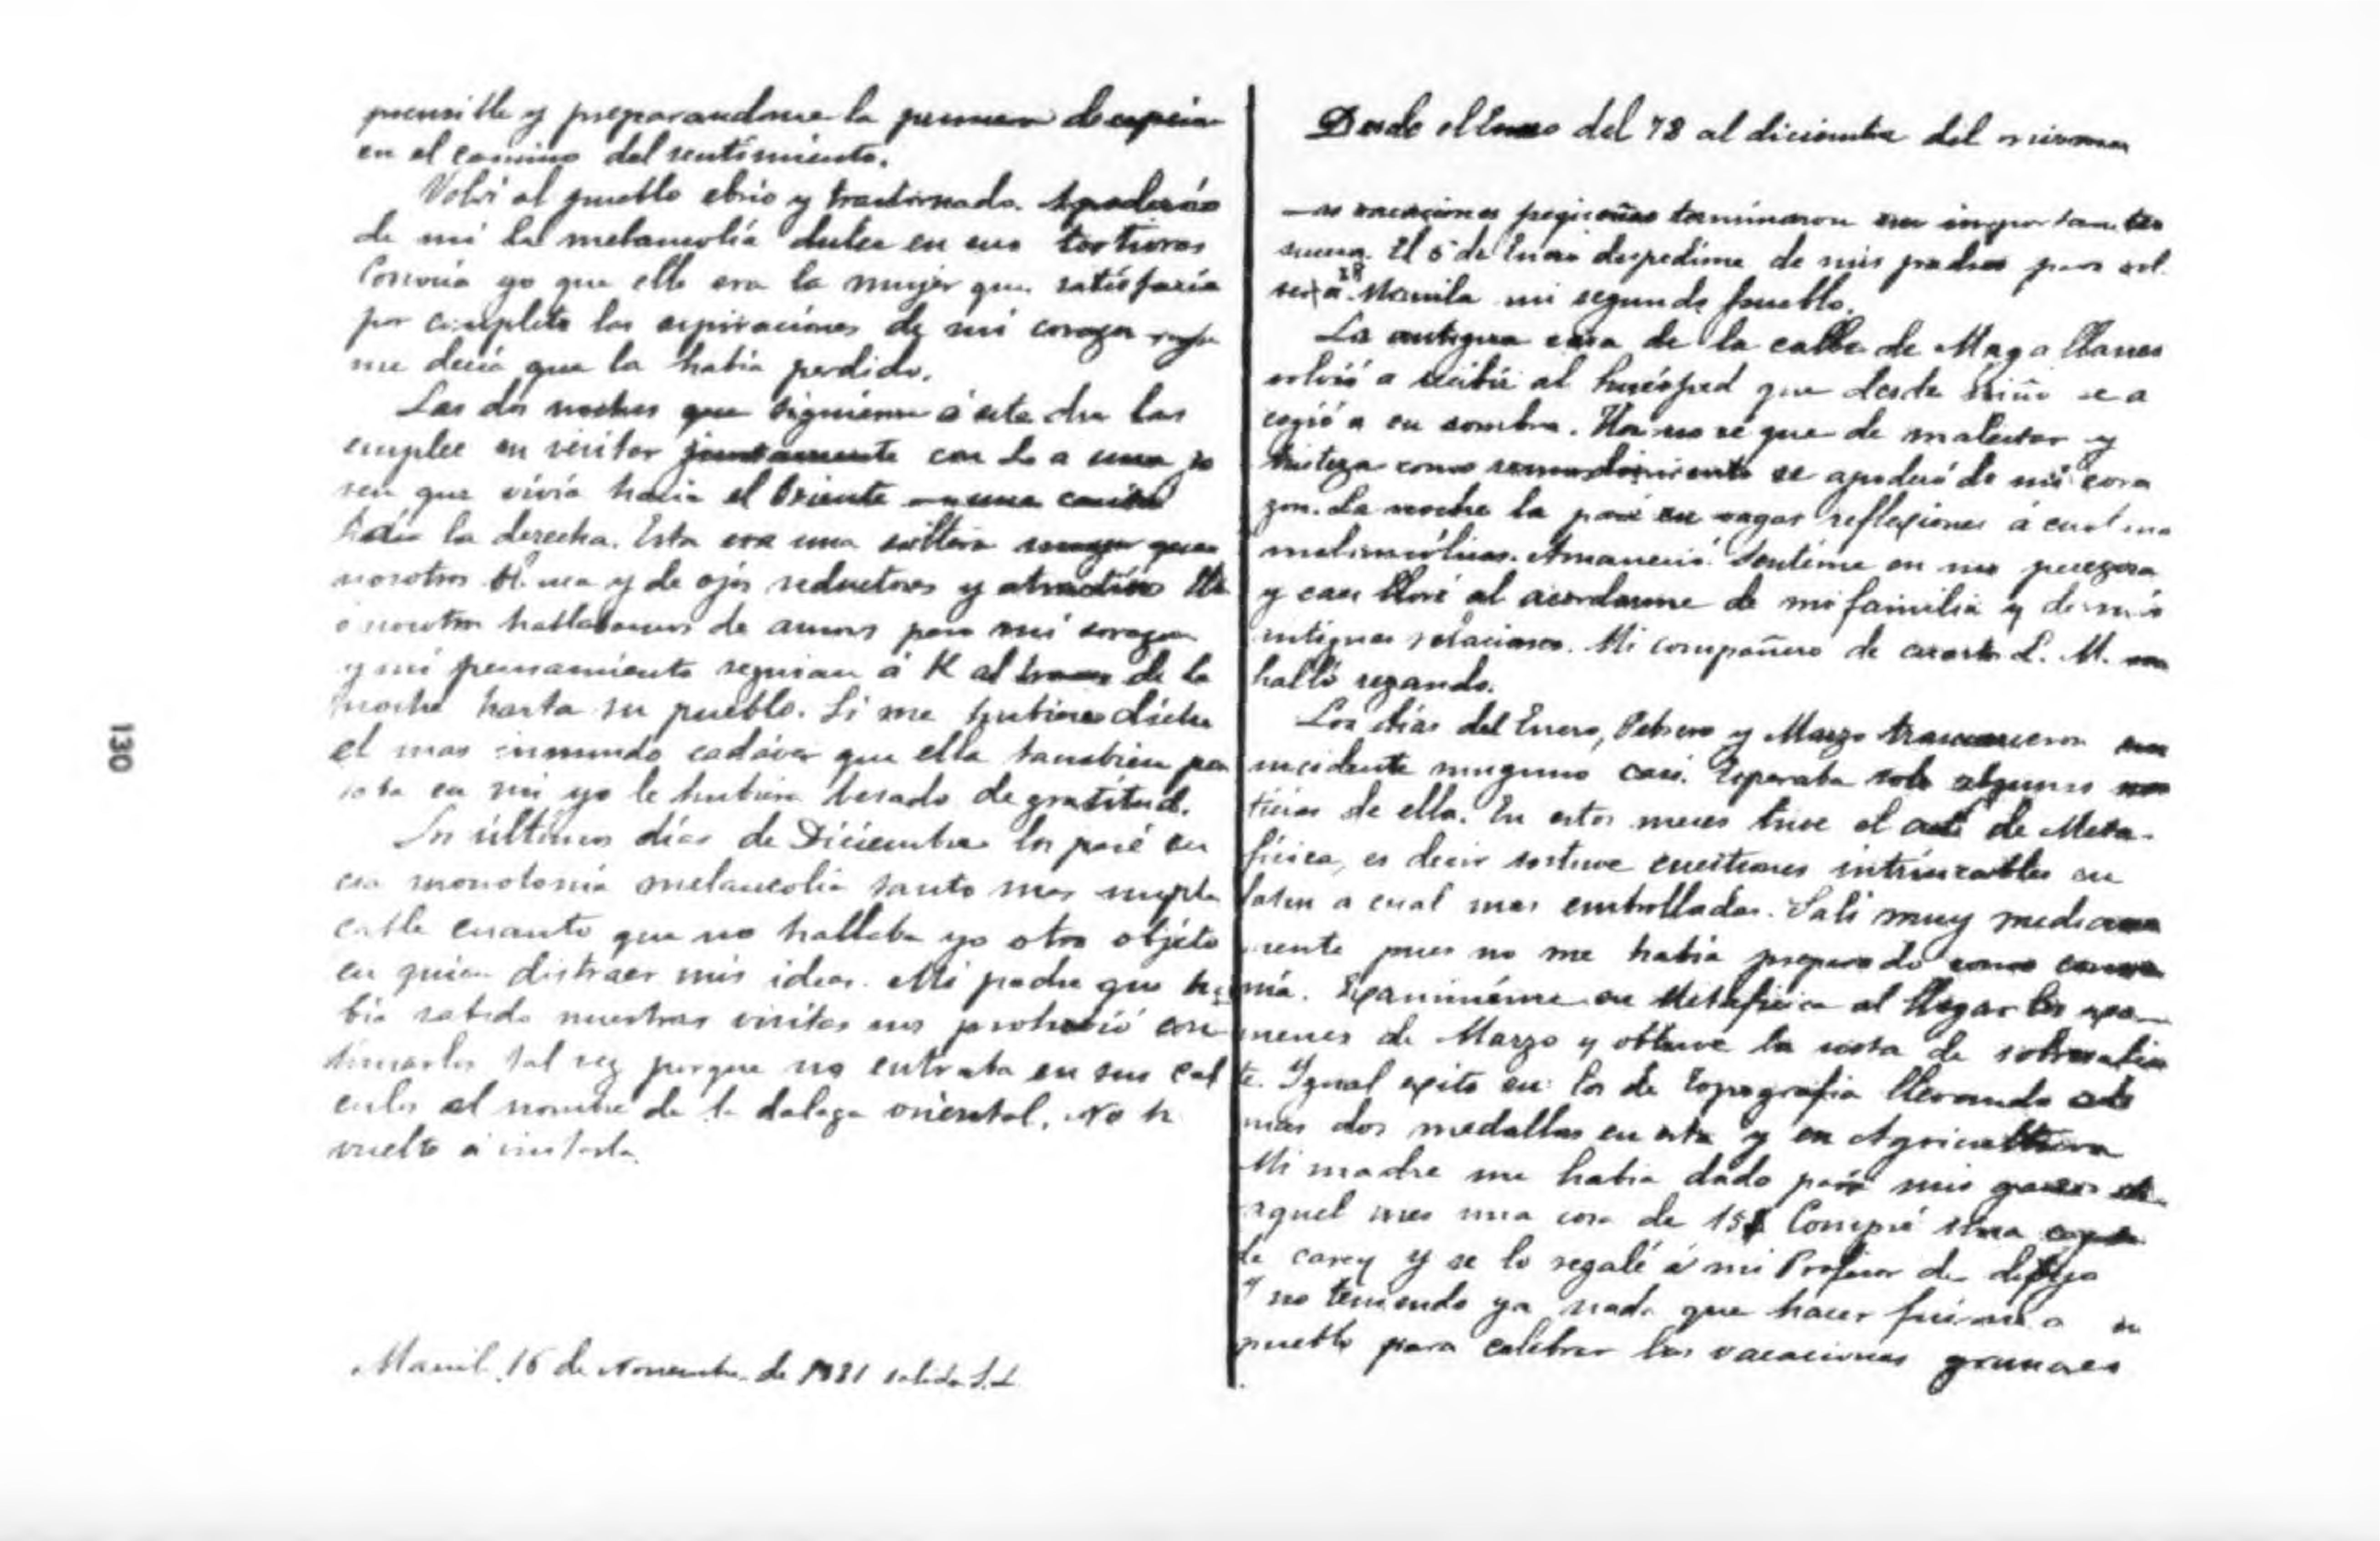 130
y preparandome la
en el camino del sentimiento.
Volví al pueblo ebrio y trastornado. Apoderóse
de mi la melancolía dulce en sus torturas
Conocía yo que ella era la mujer que satisfaria
por completo las aspiraciones de mi corazon
me decia que la habia perdido.
Las dos noches que siguieron á este dia las
emplee en visitar juntamente con L. a una jo
ven que vivía hacia el Oriente en una casita
hácia la derecha. Esta era una soltera mayor que
nosotros y de ojos seductores y atractivos
ó nosotros hablabamos de amores pero mi corazon
y mi pensamiento seguian á K al traves de la
noche hasta su pueblo. Si me hubiese dicho
el mas inmundo cadáver que ella tambien pen
saba en mi yo le hubiera besado de gratitud.
Los últimos dias de Diciembre los pasé en
esa monotonía melancolia tanto mas inexpli
cable cuanto que no hallaba yo otro objeto
en quien distraer mis ideas. Mi padre que ha
bia sabido nuestras visitas nos prohibió con
tinuarlas tal vez porque no entraba en sus cal
culos el nombre de la dalaga oriental. No he
vuelto á visitarla.
Manila 16 de Noviembre de 1881
Desde el Enero del 78 al diciembre del mismo
as vacaciones pequeñas terminaron sin importantes
El 5 de Enero despedíme de mis padres para vol
ver á Manila mi segundo pueblo.
La antigua casa de la calle de Magallanes
volvió a recibir al huésped que desde niño se a
cogió a su sombra. Un no sé que de malestar y
tristeza como remordimiento se apoderó de mi cora
zon. La noche la pasé en vagas reflexiones á cual mas
melancólicas. Amaneció. Sentíme en mi pereza
y casi lloré al acordarme de mi familia y de mis
antiguas relaciones. Mi compañero de cuarto L. M. me
halló rezando.
Los dias del Enero, Febrero y Marzo transcurrieron sin
incidente ninguno casi. Esperaba solo algunas no
ticias de ella. En estos meses tuve el acto de Meta-
física, es decir sostuve cuestiones intrincables en
latin a cual mas embrolladas. Salí muy mediana
mente pues no me habia preparado como conve
nía. Examinéme en Metafísica al llegar los exá
menes de Marzo y obtuve la nota de sobresalien
te. Igual exito en los de Topografia llevando ade
mas dos medallas en esta y en Agricultura
Mi madre me habia dado para mis gastos de
aquel mes una cosa de 15$ Compré una copa
de carey y se lo regalé á mi Profesor de dibujo
Y no teniendo ya nada que hacer fuíme a mi
pueblo para celebrar las vacaciones grandes